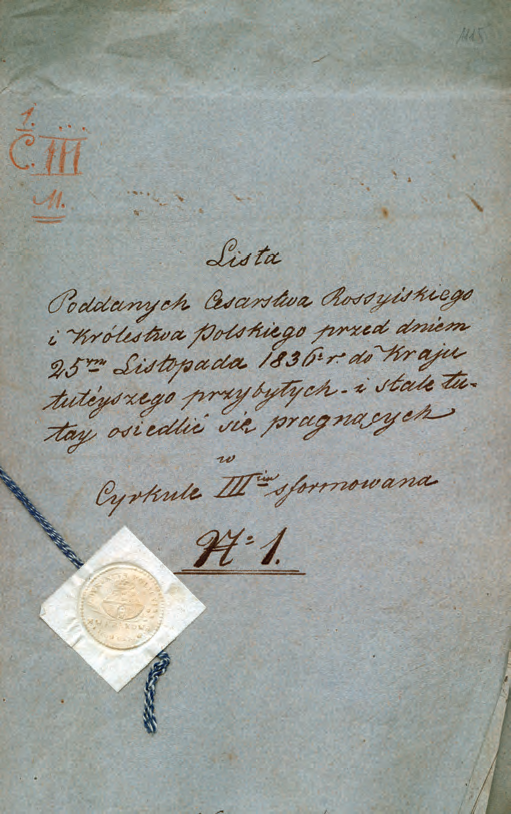 1115
1.
C. III
11.
Lista
Poddanych Cesarstwa Rossyiskiego
i Królestwa Polskiego przed dniem
25ym Listopada 1836 r. do Kraju
tutéyszego przybyłych - i stale tu-
tay osiedlić się pragnących
w
Cyrkule IIIcim sformowana
N: 1.